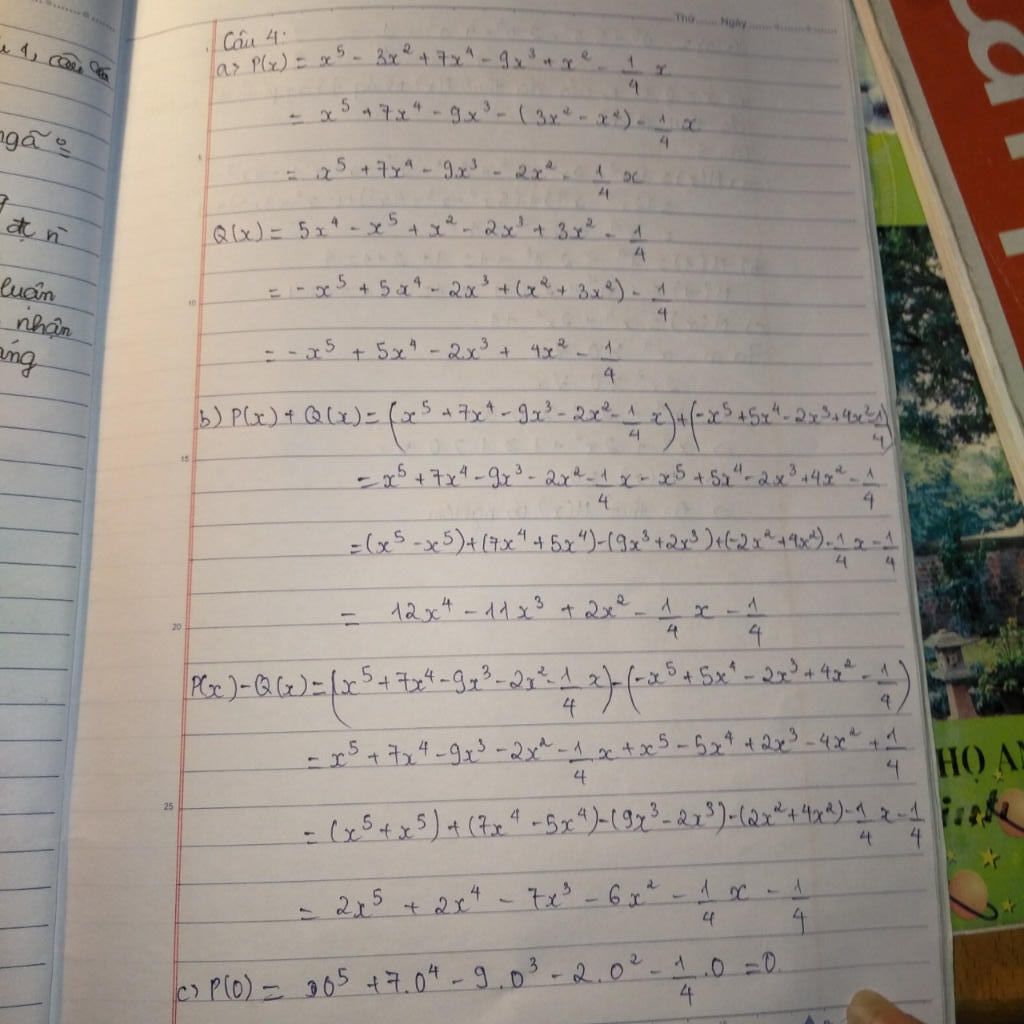 Thứ ...... Ngày ..............
Câu 4:
a> P(x) = x⁵ - 3x² + 7x⁴ - 9x³ + x² - 1/4 x
= x⁵ + 7x⁴ - 9x³ - (3x² - x²) - 1/4 x
= x⁵ + 7x⁴ - 9x³ - 2x² - 1/4 x
Q(x) = 5x⁴ - x⁵ + x² - 2x³ + 3x² - 1/4
= - x⁵ + 5x⁴ - 2x³ + (x² + 3x²) - 1/4
= - x⁵ + 5x⁴ - 2x³ + 4x² - 1/4
b) P(x) + Q(x) = (x⁵ + 7x⁴ - 9x³ - 2x² - 1/4 x) + (-x⁵ + 5x⁴ - 2x³ + 4x² - 1/4)
= x⁵ + 7x⁴ - 9x³ - 2x² - 1/4 x - x⁵ + 5x⁴ - 2x³ + 4x² - 1/4
= (x⁵ - x⁵) + (7x⁴ + 5x⁴) - (9x³ + 2x³) + (-2x² + 4x²) - 1/4 x - 1/4
= 12x⁴ - 11x³ + 2x² - 1/4 x - 1/4
P(x) - Q(x) = (x⁵ + 7x⁴ - 9x³ - 2x² - 1/4 x) - (-x⁵ + 5x⁴ - 2x³ + 4x² - 1/4)
= x⁵ + 7x⁴ - 9x³ - 2x² - 1/4 x + x⁵ - 5x⁴ + 2x³ - 4x² + 1/4
= (x⁵ + x⁵) + (7x⁴ - 5x⁴) - (9x³ - 2x³) - (2x² + 4x²) - 1/4 x - 1/4
= 2x⁵ + 2x⁴ - 7x³ - 6x² - 1/4 x - 1/4
c> P(0) = 0⁵ + 7.0⁴ - 9.0³ - 2.0² - 1/4 .0 = 0
5
10
15
20
25
luận
nhận
HỌ AN